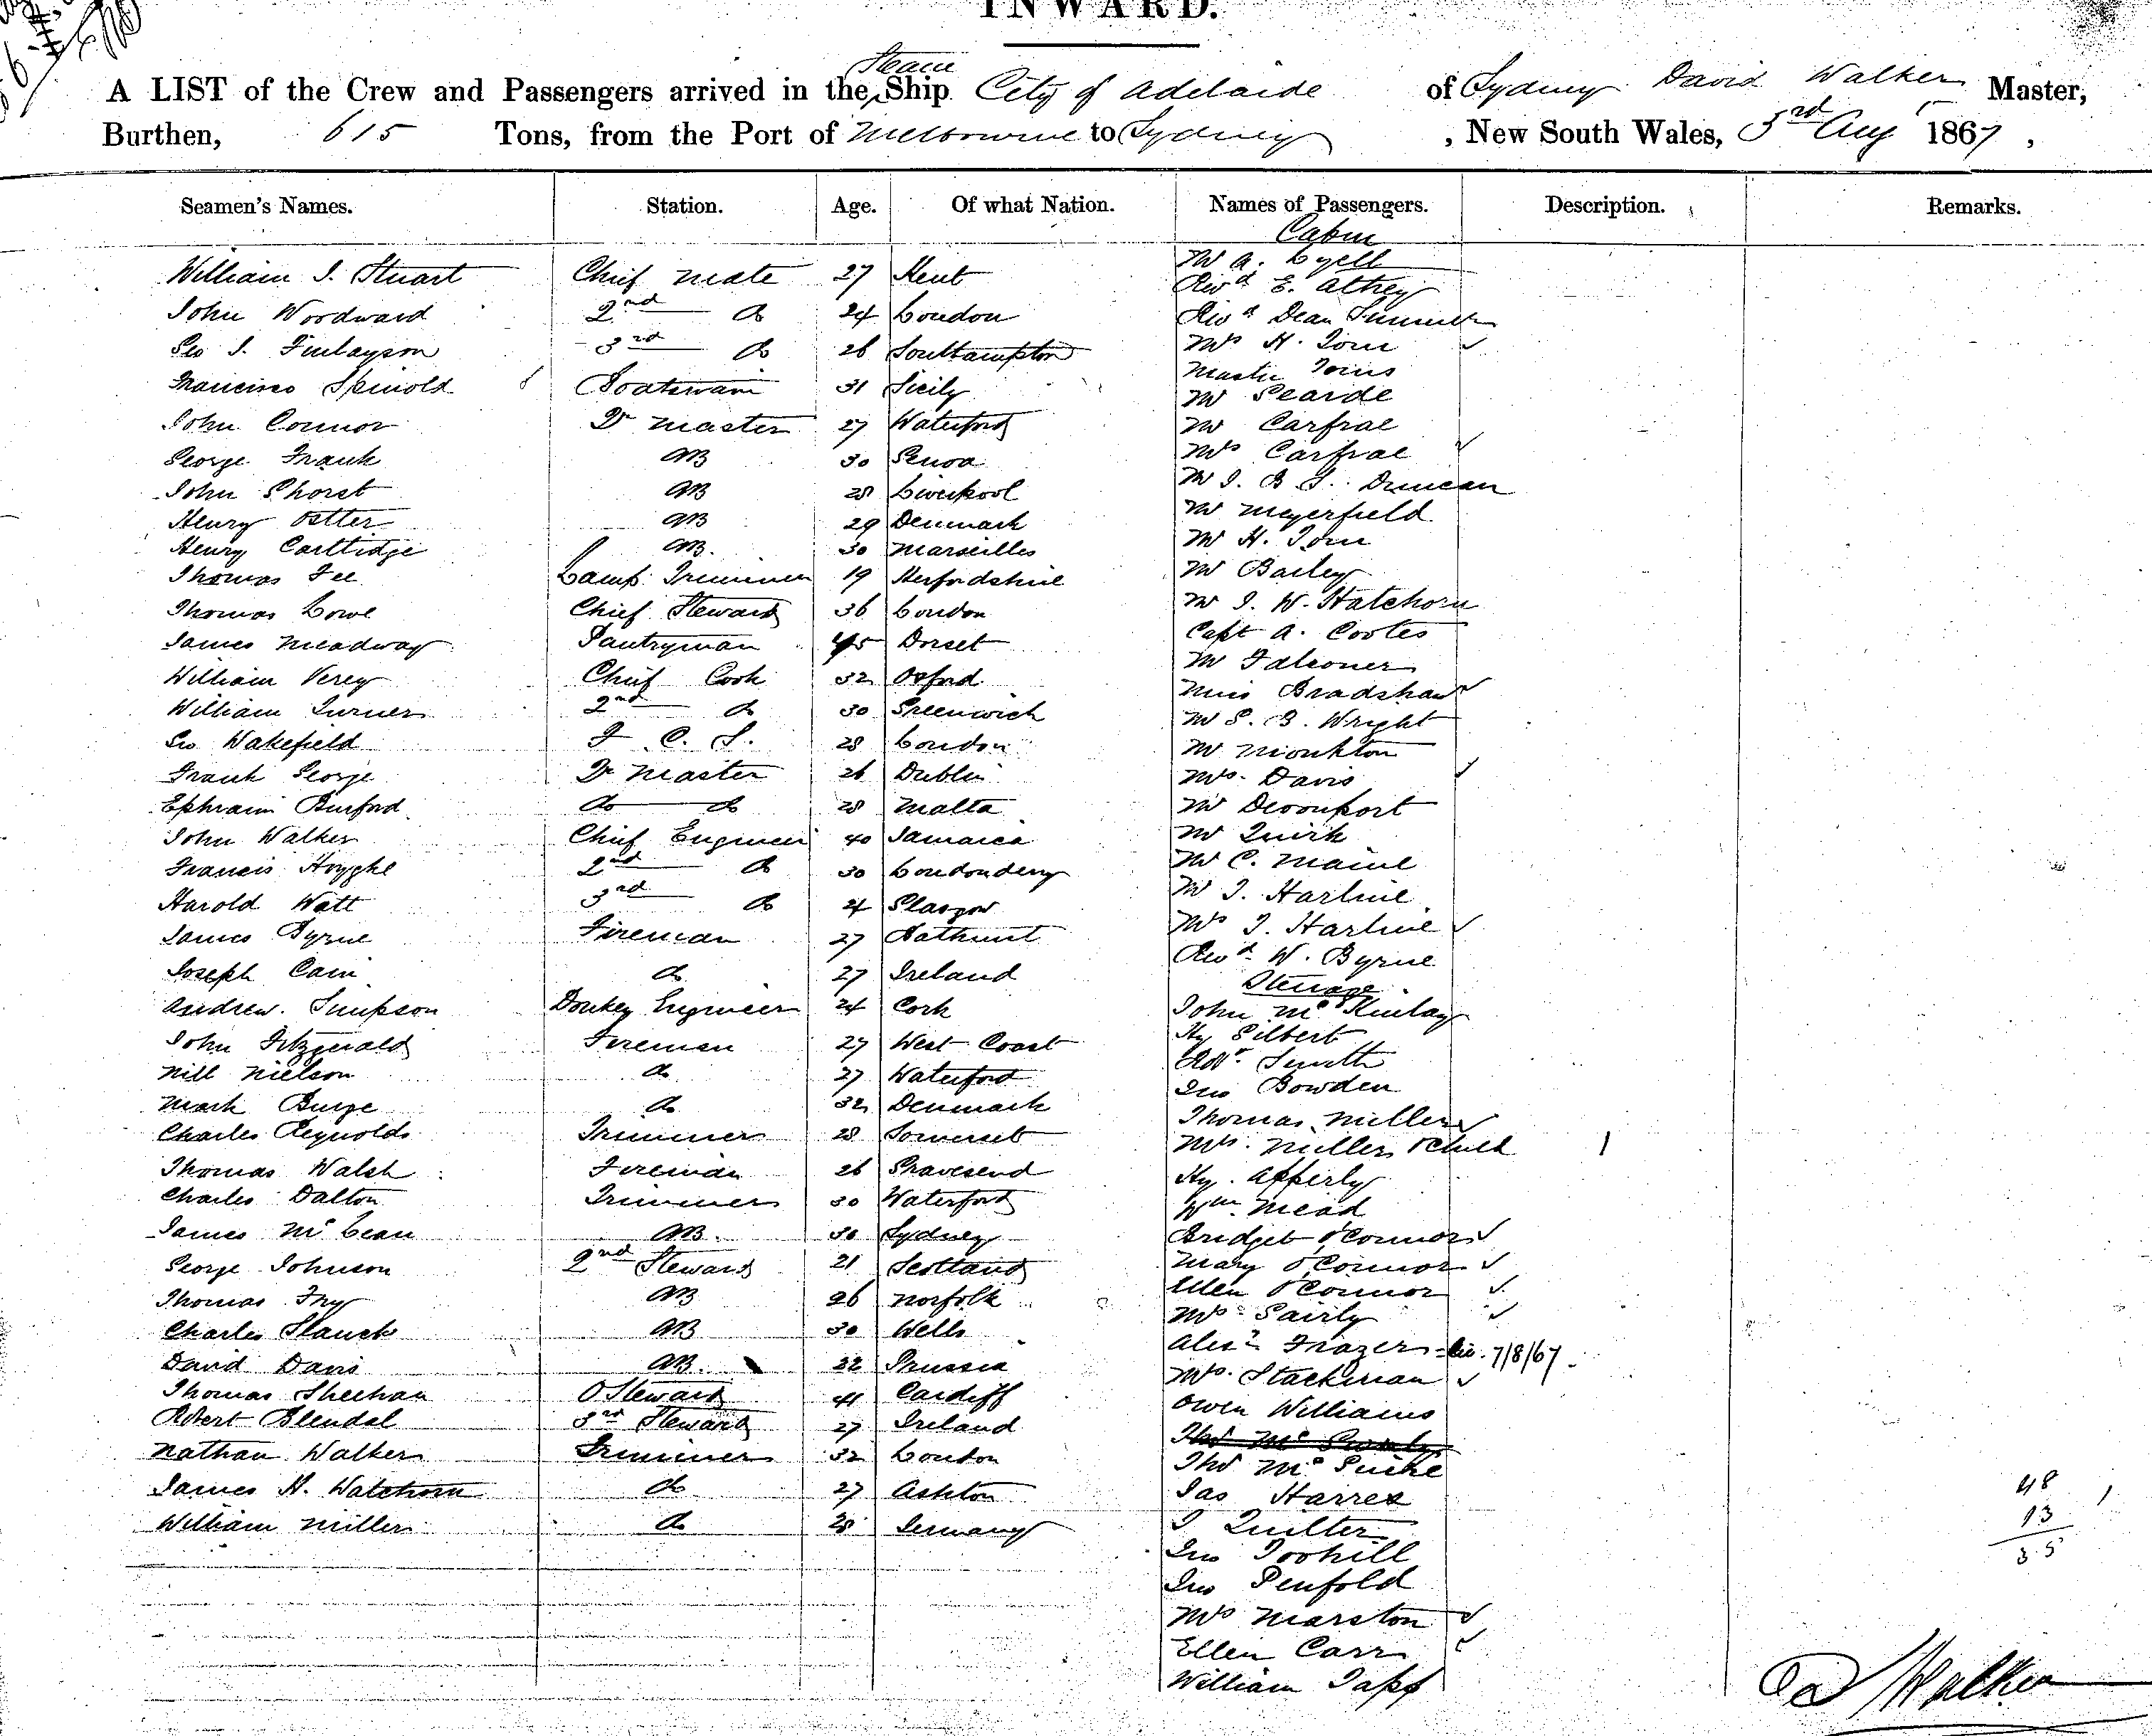 INWARD.
A LIST of the Crew and Passengers arrived in the Steam Ship City of Adelaide of Sydney David Walker Master,
Burthen, 615 Tons, from the Port of Melbourne to Sydney, New South Wales, 3rd Aug 1867,
Seamen's Names. Station. Age. Of what Nation. Names of Passengers. Description. Remarks.
Cabin
William J. Stuart Chief Mate 27 Kent Mr A. Lyell
Revd E. Athey
John Woodward 2nd do 24 London Revd Dean
Geo J. Finlayson 3rd do 26 Southampton Mrs H.
Master
Francisco Spinold Boatswain 31 Sicily Mr
John Connor Qr Master 27 Waterford Mr Carfrae
George Frank AB 30 Genoa Mrs Carfrae
John Ghorst AB 28 Liverpool Mr J. B. S. Duncan
Henry Ostter AB 29 Denmark Mr Meyerfield
Henry Carttidge AB. 30 Marseilles Mr H.
Thomas Fee Lamp Trimmer 19 Herfordshire Mr Bailey
Thomas Lowe Chief Steward 36 London Mr J. W. Hatchorn
James Meadway Pantryman 45 Dorset Capt A. Cootes
William Verey Chief Cook 32 Oxford Mr Falconer
Miss Bradshaw
William Turner 2nd do 30 Greenwich Mr S. B. Wright
Geo Wakefield F. C. S. 28 London Mr Monkton
Frank George Qr Master 26 Dublin Mrs. Davis
Ephraim Burford do do 28 Malta Mr Devonport
John Walker Chief Engineer 40 Jamaica Mr Quirk
Francis Hoyghe 2nd do 30 Londonderry Mr C. Maine
Harold Watt 3rd do Glasgow Mr J. Harline
James Byrne Fireman 27 Bathurst Mrs J. Harline
Revd W. Byrne
Joseph Cain do 27 Ireland Steerage
Andrew Simpson Donkey Engineer 24 Cork John McKinlay
John Fitzgerald Fireman 27 West Coast Hy Gilbert
Robt. Smith
Nill Nielson do 27 Waterford Jno Bowden
Mark Burge do 32 Denmark Thomas Miller
Charles Reynolds Trimmer 28 Somerset Mrs. Miller & Child 1
Thomas Walsh Fireman 26 Gravesend Hy. Apperly
Charles Dalton Trimmer 30 Waterford Wm Mead
James McLean AB. 30 Sydney Bridget O'Connor
George Johnson 2nd Steward 21 Scotland Mary O'Connor
Thomas Fry AB 26 Norfolk Ellen O'Connor
Mrs Gairly
Charles Slanek AB 30 Wells Alexr Frazer 7/8/67
David Davis AB. 22 Prussia Mrs. Stackman
Thomas Sheehan Steward 41 Cardiff Owen Williams
Robert Blendal 3rd Steward 27 Ireland
Nathan Walker Trimmer 32 London Thos McGuire
James H. Watchorn do 27 Ashton Jas Harrex
William Miller do 28 Germany J Quilter
Jno Toohill
Jno Penfold
Mrs Marston
Ellen Carr
William Tapp
48 1
13
35
D Walker